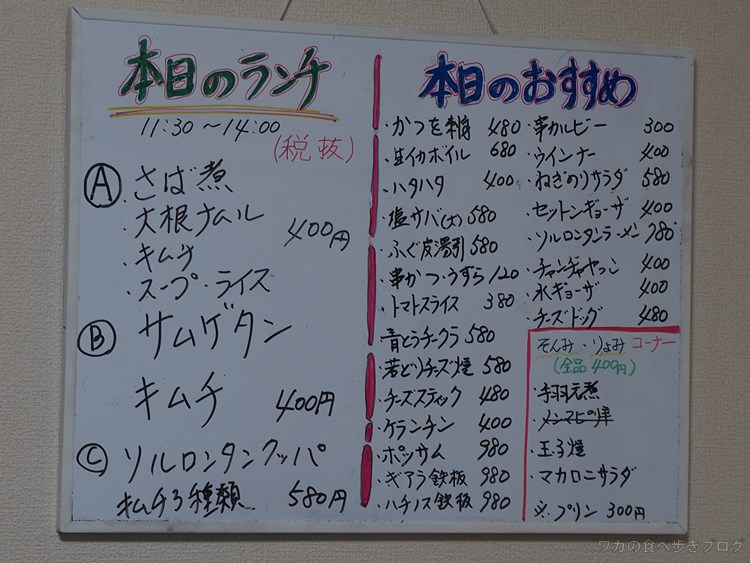 本日のランチ
11:30 ～14:00
(税抜)
Ⓐ・さば煮
・大根ナムル
・キムチ
・スープ・ライス
400円
Ⓑ サムゲタン
キムチ
400円
Ⓒ ソルロンタンクッパ
キムチ3種類 580円
本日のおすすめ
・かつを刺身 480
・生イカボイル 680
・ハタハタ 400
・塩サバ(大) 580
・ふぐ皮湯引 580
・串かつ・うずら 120
・トマトスライス 380
青とうチークラ 580
・若どりチーズ焼 580
・チーズスティック 480
・ケランチン 400
・ポッサム 980
・ギアラ鉄板 980
・ハチノス鉄板 980
・串カルビー 300
・ウインナー 400
・ねぎのりサラダ 580
・セットンギョーザ 400
・ソルロンタンラーメン 780
・チャンヂャやっこ 400
・水ギョーザ 400
・チーズドッグ 480
そんみ・りょみ コーナー
(全品400円)
・手羽元煮
・玉子焼
・マカロニサラダ
※プリン 300円
ワカの食べ歩きブログ